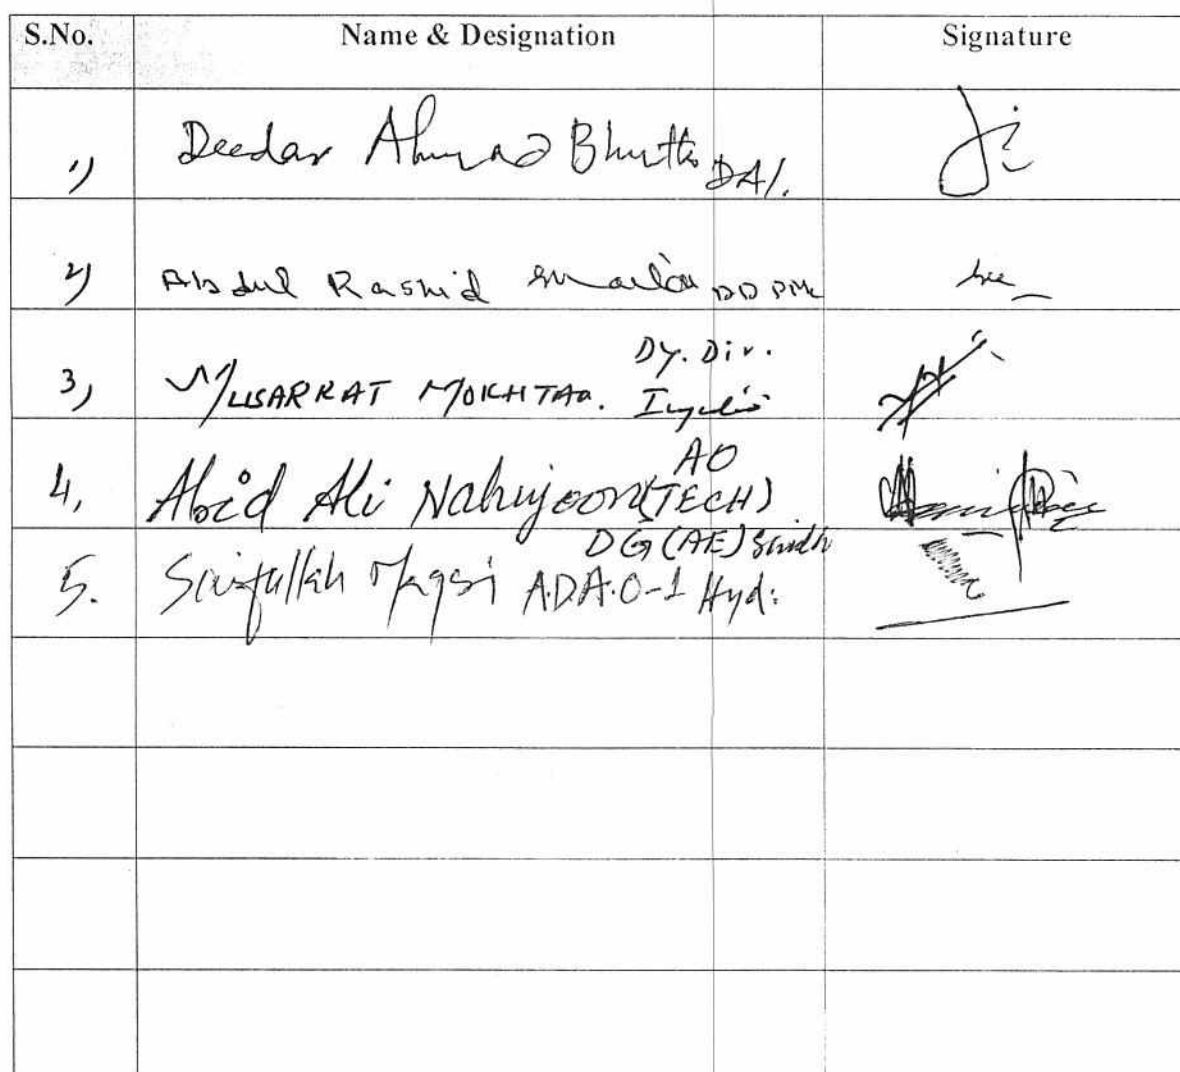 S.No. Name & Designation Signature
1) Deedar Ahmad Bhutto DA/.
2) Abdul Rashid DD
3) MUSARRAT MOKHTAR. Dy. Div.
4, Abid Ali Nahiyoon AO (TECH)
DG (AE) Sindh
5. Saifullah Magsi A.D.A.O-1 Hyd: